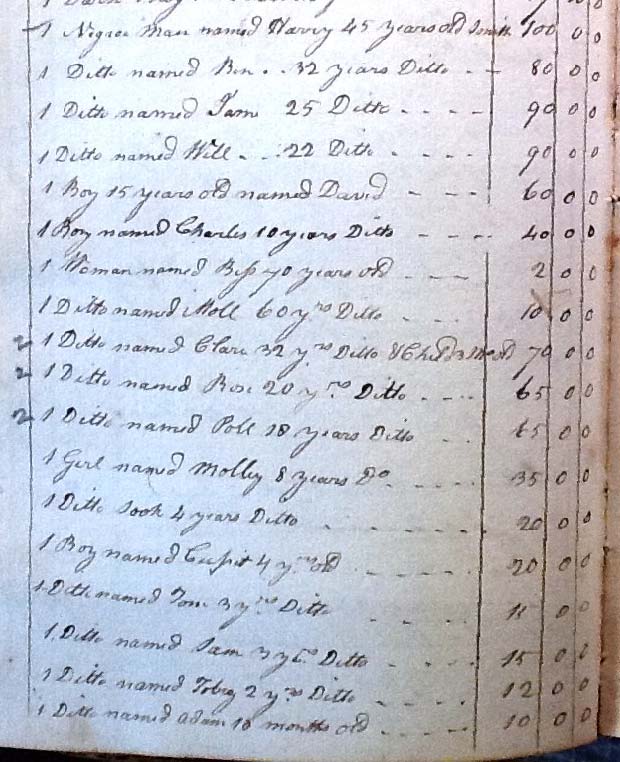 1 Negroe Man named Harry 45 years old Smith 100 0 0
1 Ditto named Ben 32 years Ditto 80 0 0
1 Ditto named Sam 25 Ditto 90 0 0
1 Ditto named Will 22 Ditto 90 0 0
1 Boy 15 years old named David 60 0 0
1 Boy named Charles 10 years Ditto 40 0 0
1 Woman named Bess 70 years old 2 0 0
1 Ditto named Moll 60 yrs Ditto 10 0 0
2 1 Ditto named Clara 32 yrs Ditto & Child 70 0 0
2 1 Ditto named Rose 20 yrs Ditto 65 0 0
2 1 Ditto named Poll 18 years Ditto 65 0 0
1 Girl named Molley 8 years Do 35 0 0
1 Ditto Sook 4 years Ditto 20 0 0
1 Boy named Cupit 4 yrs old 20 0 0
1 Ditto named Tom 3 yrs Ditto 0 0
1 Ditto named Sam 3 yrs Ditto 15 0 0
1 Ditto named Tobey 2 yrs Ditto 12 0 0
1 Ditto named Adam 10 months old 10 0 0